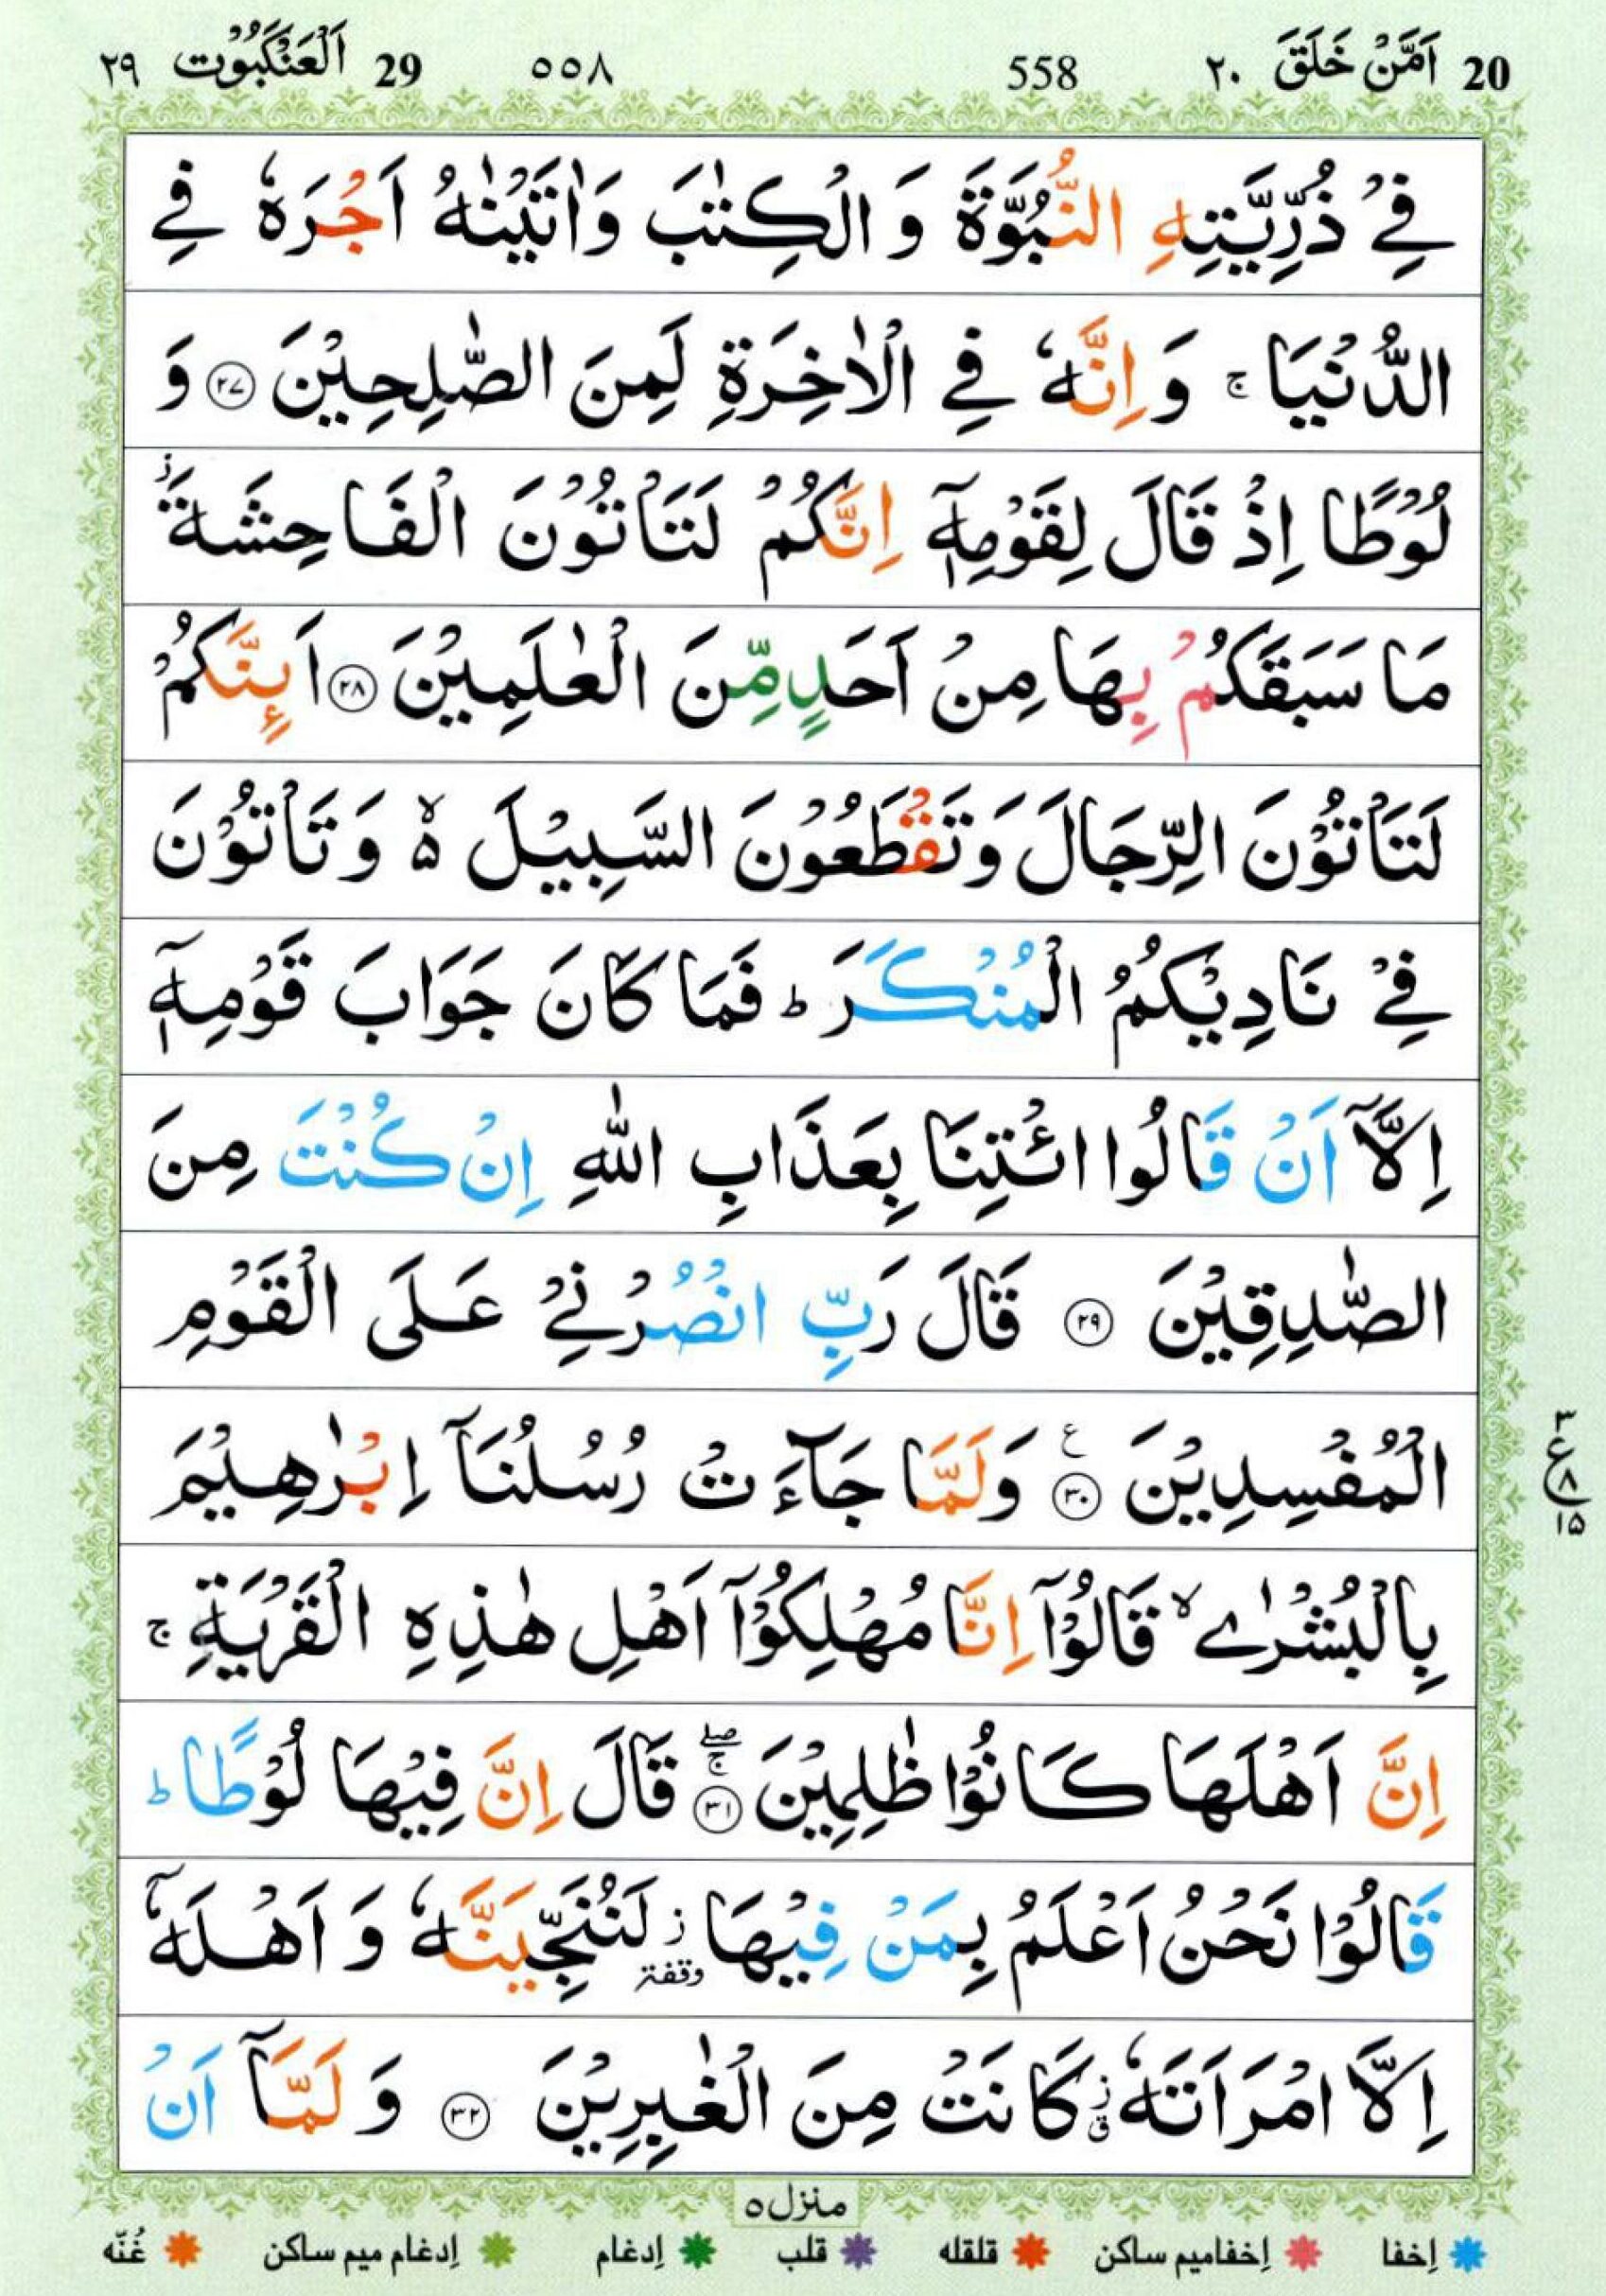 20 اَمَّنْ خَلَقَ ٢٠ 558 ٥٥٨ 29 اَلْعَنْكَبُوْت ٢٩
فِیْ ذُرِّیَّتِهِ النُّبُوَّةَ وَ الْكِتٰبَ وَاٰتَیْنٰهُ اَجْرَهٗ فِی
الدُّنْیَا ۚ وَاِنَّهٗ فِی الْاٰخِرَةِ لَمِنَ الصّٰلِحِیْنَ ﴿۲۷﴾ وَ
لُوْطًا اِذْ قَالَ لِقَوْمِهٖۤ اِنَّكُمْ لَتَاْتُوْنَ الْفَاحِشَةَ ؗ
مَا سَبَقَكُمْ بِهَا مِنْ اَحَدٍ مِّنَ الْعٰلَمِیْنَ ﴿۲۸﴾ اَىِٕنَّكُمْ
لَتَاْتُوْنَ الرِّجَالَ وَتَقْطَعُوْنَ السَّبِیْلَ ۙ۵ وَ تَاْتُوْنَ
فِیْ نَادِیْكُمُ الْمُنْكَرَ ؕ فَمَا كَانَ جَوَابَ قَوْمِهٖۤ
اِلَّاۤ اَنْ قَالُوا ائْتِنَا بِعَذَابِ اللّٰهِ اِنْ كُنْتَ مِنَ
الصّٰدِقِیْنَ ﴿۲۹﴾ قَالَ رَبِّ انْصُرْنِیْ عَلَی الْقَوْمِ
الْمُفْسِدِیْنَ ﴿۳۰﴾ ع وَلَمَّا جَآءَتْ رُسُلُنَاۤ اِبْرٰهِیْمَ
٣ ع ٨ ١٥
بِالْبُشْرٰی ۙ قَالُوْۤا اِنَّا مُهْلِكُوْۤا اَهْلِ هٰذِهِ الْقَرْیَةِ ۚ
اِنَّ اَهْلَهَا كَانُوْا ظٰلِمِیْنَ ﴿۳۱﴾ ۚۖ قَالَ اِنَّ فِیْهَا لُوْطًا ؕ
قَالُوْا نَحْنُ اَعْلَمُ بِمَنْ فِیْهَا ؗ وقفة لَنُنَجِّیَنَّهٗ وَ اَهْلَهٗۤ
اِلَّا امْرَاَتَهٗ زق كَانَتْ مِنَ الْغٰبِرِیْنَ ﴿۳۲﴾ وَ لَمَّاۤ اَنْ
منزل ٥
إخفا إخفامیم ساكن قلقله قلب إدغام إدغام میم ساكن غُنّه